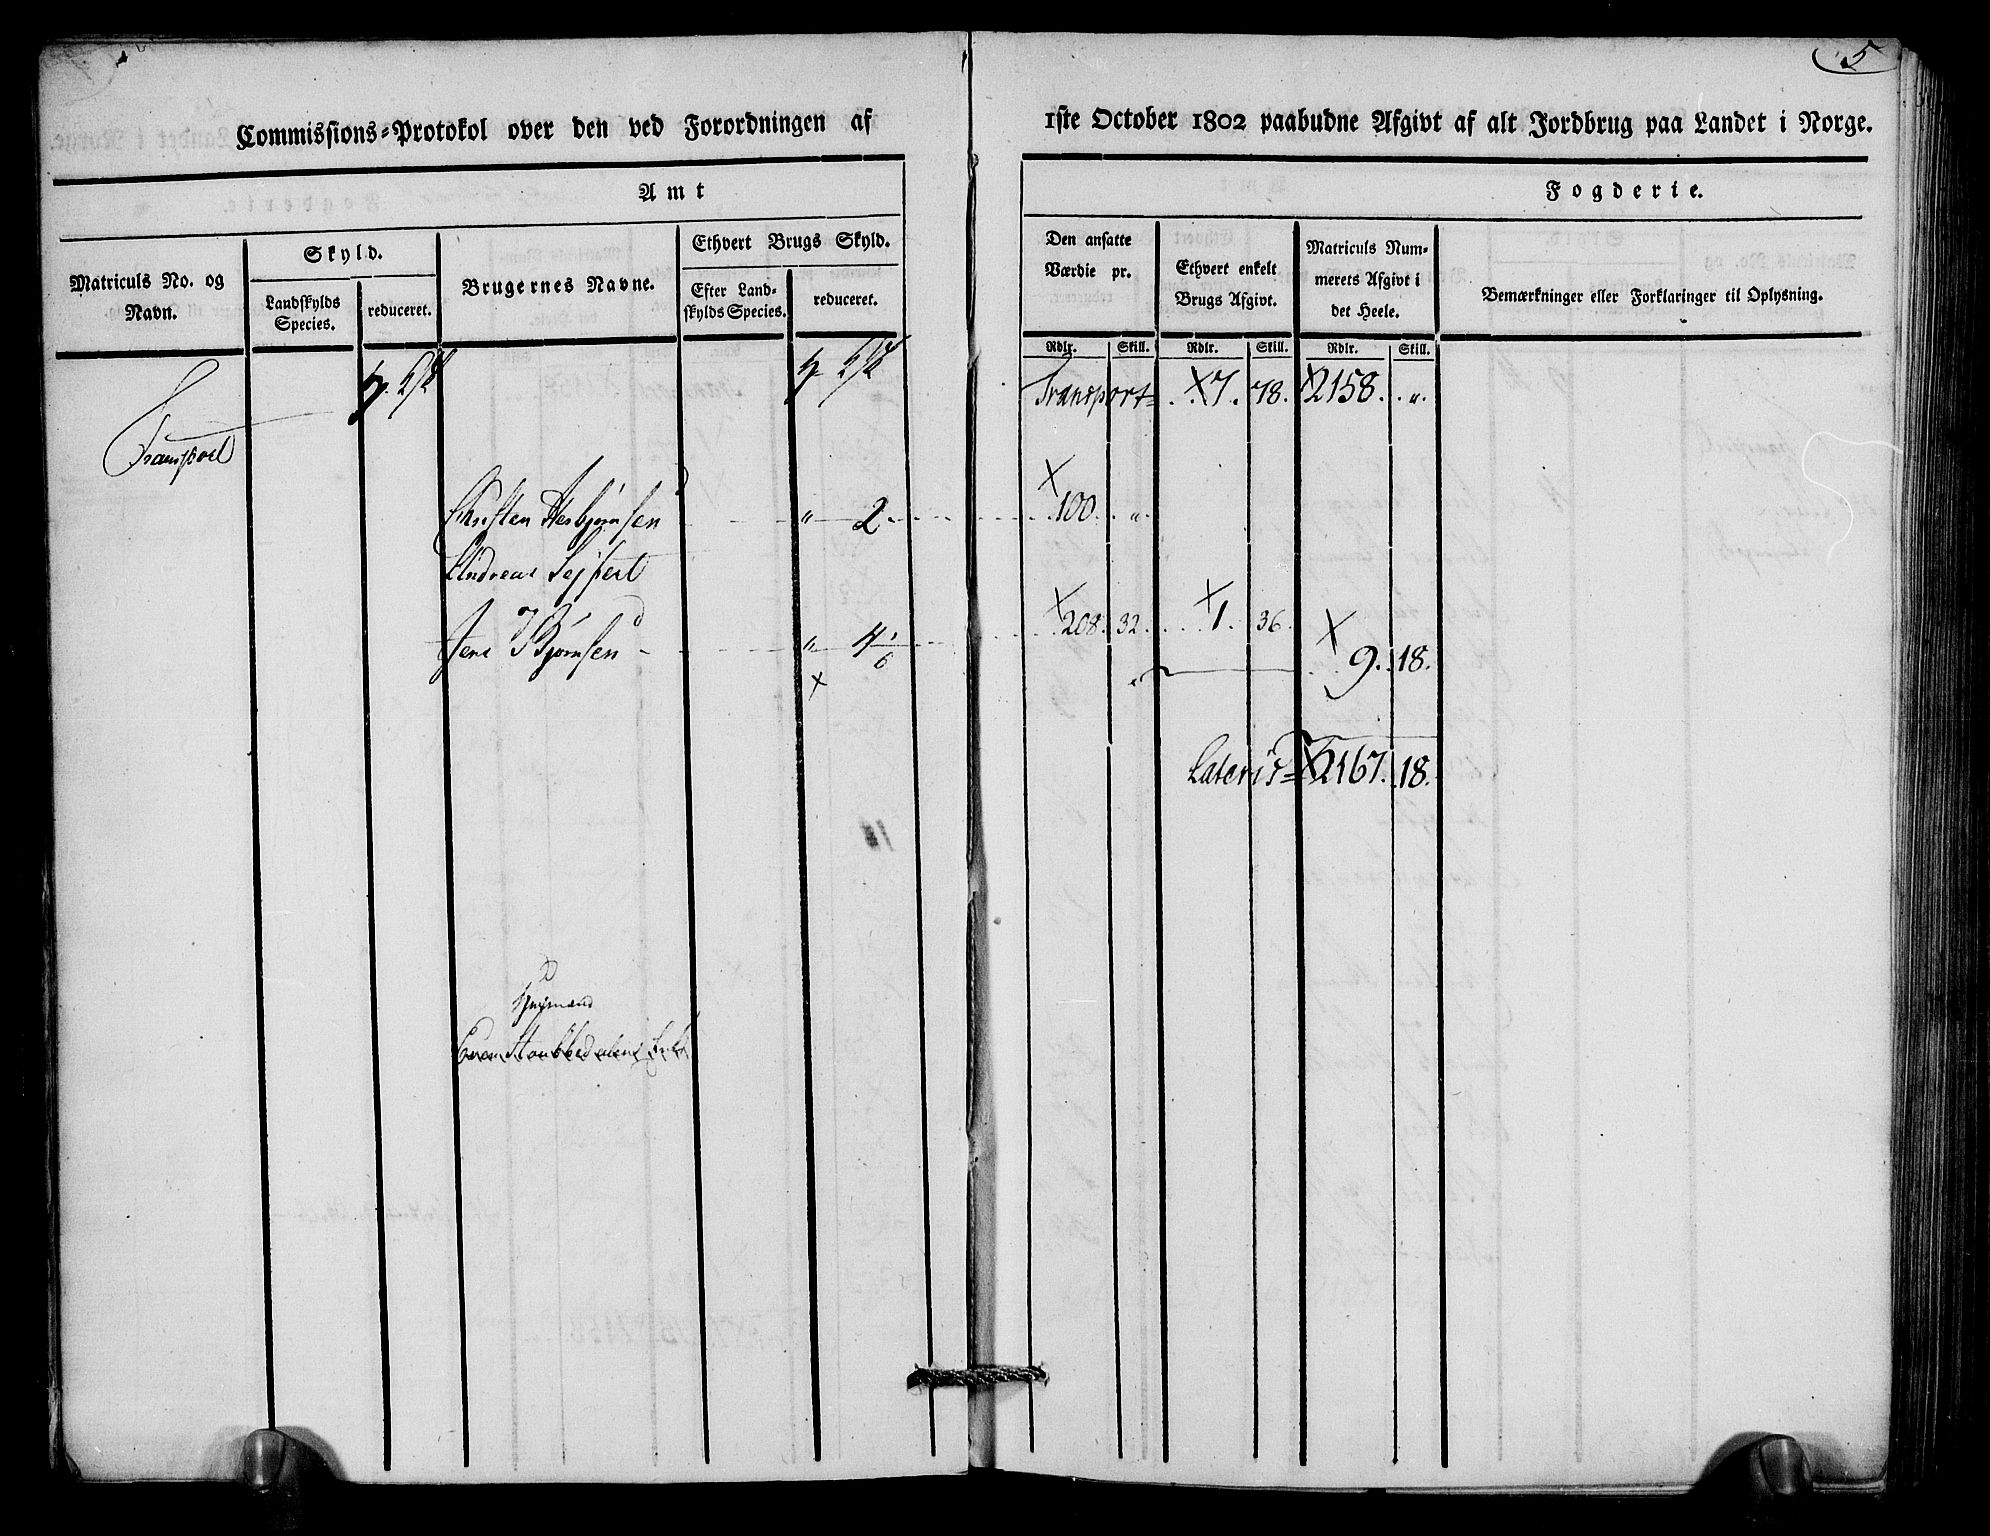 5
Commissions-Protokol over den ved Forordningen af 1ste October 1802 paabudne Afgivt af alt Jordbrug paa Landet i Norge.
Amt
Fogderie.
Matriculs No. og Navn.
Skyld.
Landskylds Species.
reduceret.
Brugernes Navne.
Ethvert Brugs Skyld.
Efter Landskylds Species.
reduceret.
Den ansatte Værdie pr.
Ethvert enkelt Brugs Afgivt.
Matriculs Nummerets Afgivt i det Heele.
Bemærkninger eller Forklaringer til Oplysning.
Rdlr. Skill. Rdlr. Skill. Rdlr. Skill.
Transport
Transport 7. 78. 2158. „
Christen Asbjørnsen „ 2 100. „
Andreas Sejfert
Jens Bjørnsen „ 4 1/6 208. 32. 1. 36.
9. 18.
Lateris 2167. 18.